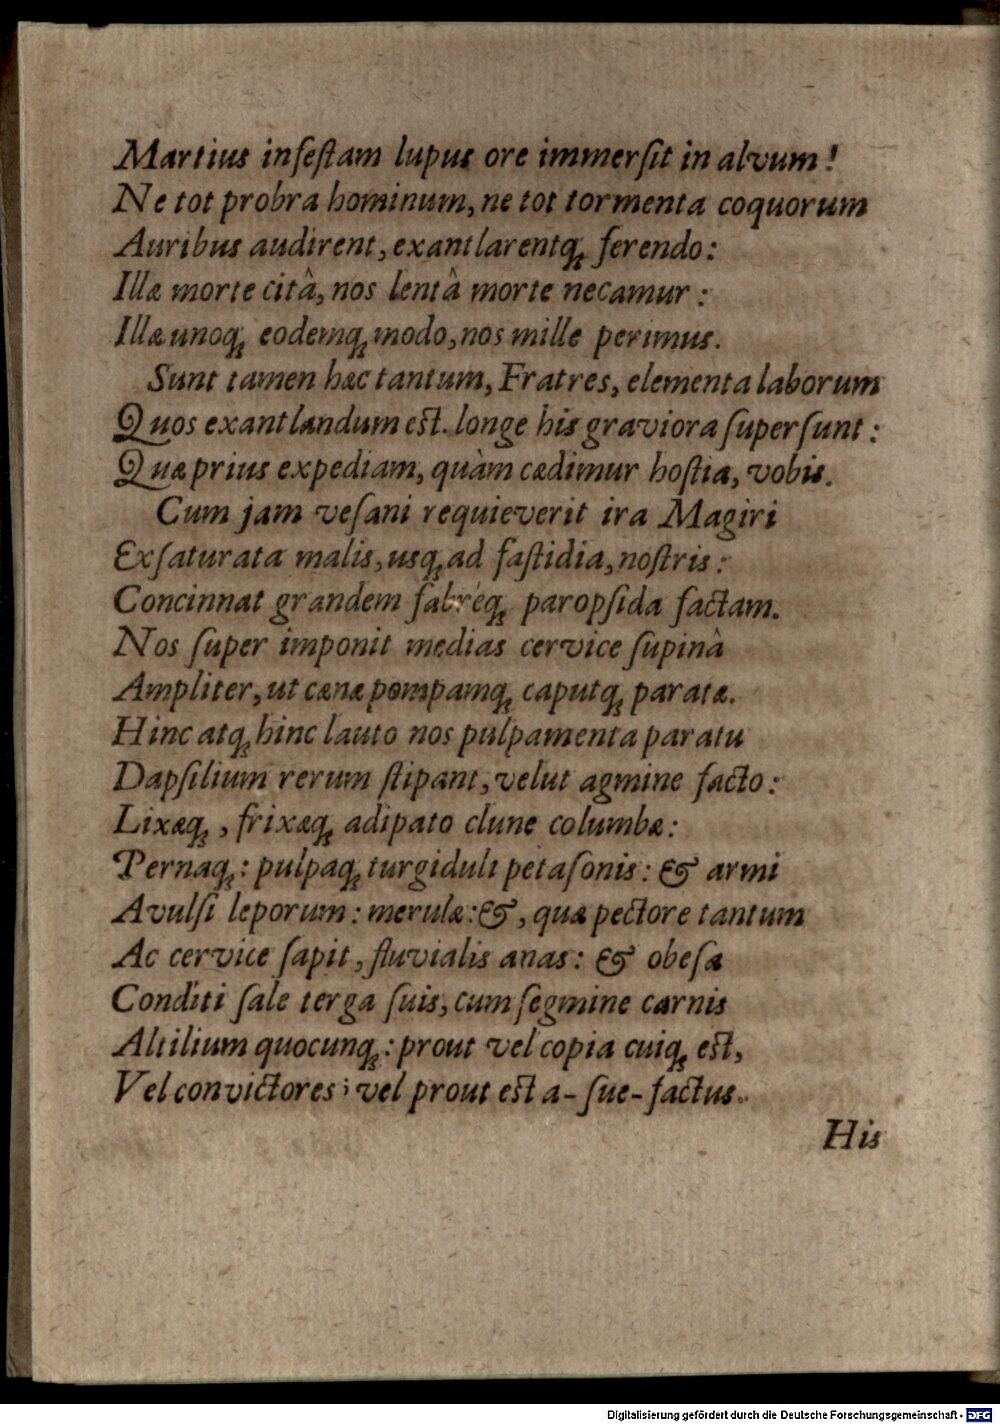 Martius infeſtam lupus ore immerſit in alvum!
Ne tot probra hominum, ne tot tormenta coquorum
Auribus audirent, exantlarentq́; ferendo:
Illæ morte citâ, nos lentâ morte necamur:
Illæ unoq́; eodemq́; modo, nos mille perimus.
Sunt tamen hæc tantum, Fratres, elementa laborum
Quos exantlandum eſt. longe his graviora ſuperſunt:
Quæ prius expediam, quàm cædimur hoſtia, vobis.
Cum jam veſani requieverit ira Magiri
Exſaturata malis, usq; ad faſtidia, noſtris:
Concinnat grandem fabréq; paropſida factam.
Nos ſuper imponit medias cervice ſupinâ
Ampliter, ut cænæ pompamq; caputq; paratæ.
Hinc atq; hinc lauto nos pulpamenta paratu
Dapſilium rerum ſtipant, velut agmine facto:
Lixæq;, frixæq; adipato clune columbæ:
Pernaq;: pulpaq; turgiduli petaſonis: & armi
Avulſi leporum: merulæ: &, quæ pectore tantum
Ac cervice ſapit, fluvialis anas: & obeſæ
Conditi ſale terga ſuis, cum ſegmine carnis
Altilium quocunq;: prout vel copia cuiq; eſt,
Vel convictores; vel prout eſt a-ſue-factus.
His
Digitalisierung gefördert durch die Deutsche Forschungsgemeinschaft - DFG